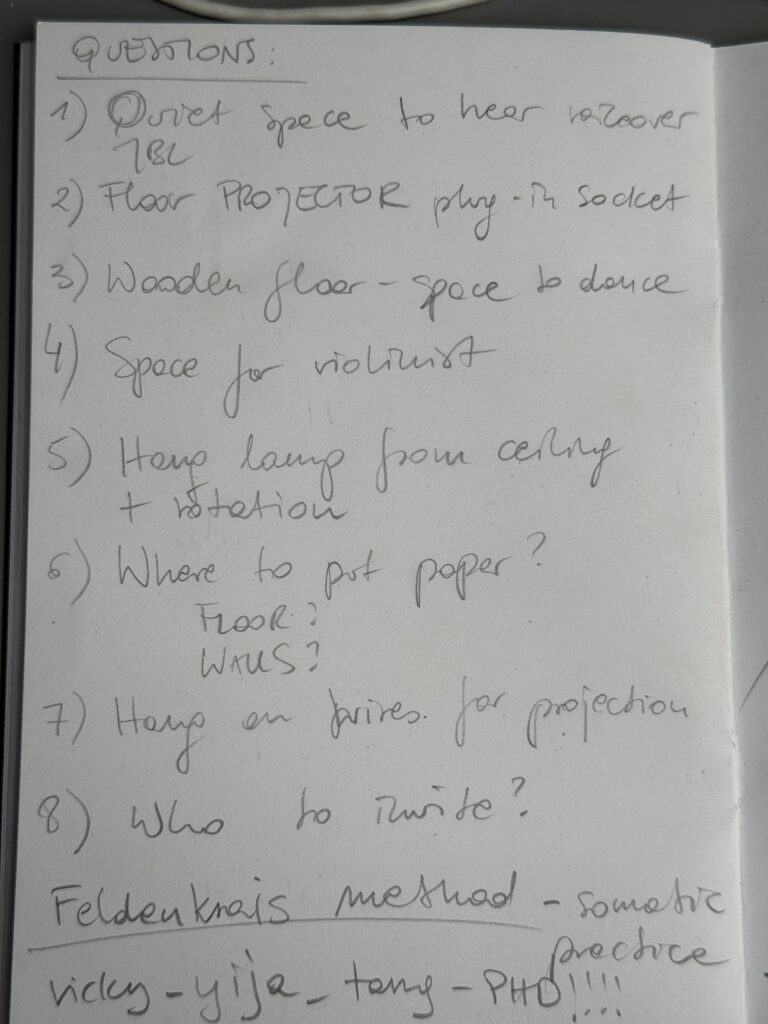 QUESTIONS:
1) Quiet space to hear voiceover
JBL
2) Floor PROJECTOR plug-in socket
3) Wooden floor - space to dance
4) Space for violinist
5) Hang lamp from ceiling
+ rotation
6) Where to put paper?
FLOOR?
WALLS?
7) Hang on wires. for projection
8) Who to invite?
Feldenkrais method - somatic
practice
vicky_yija_tang - PHD!!!!